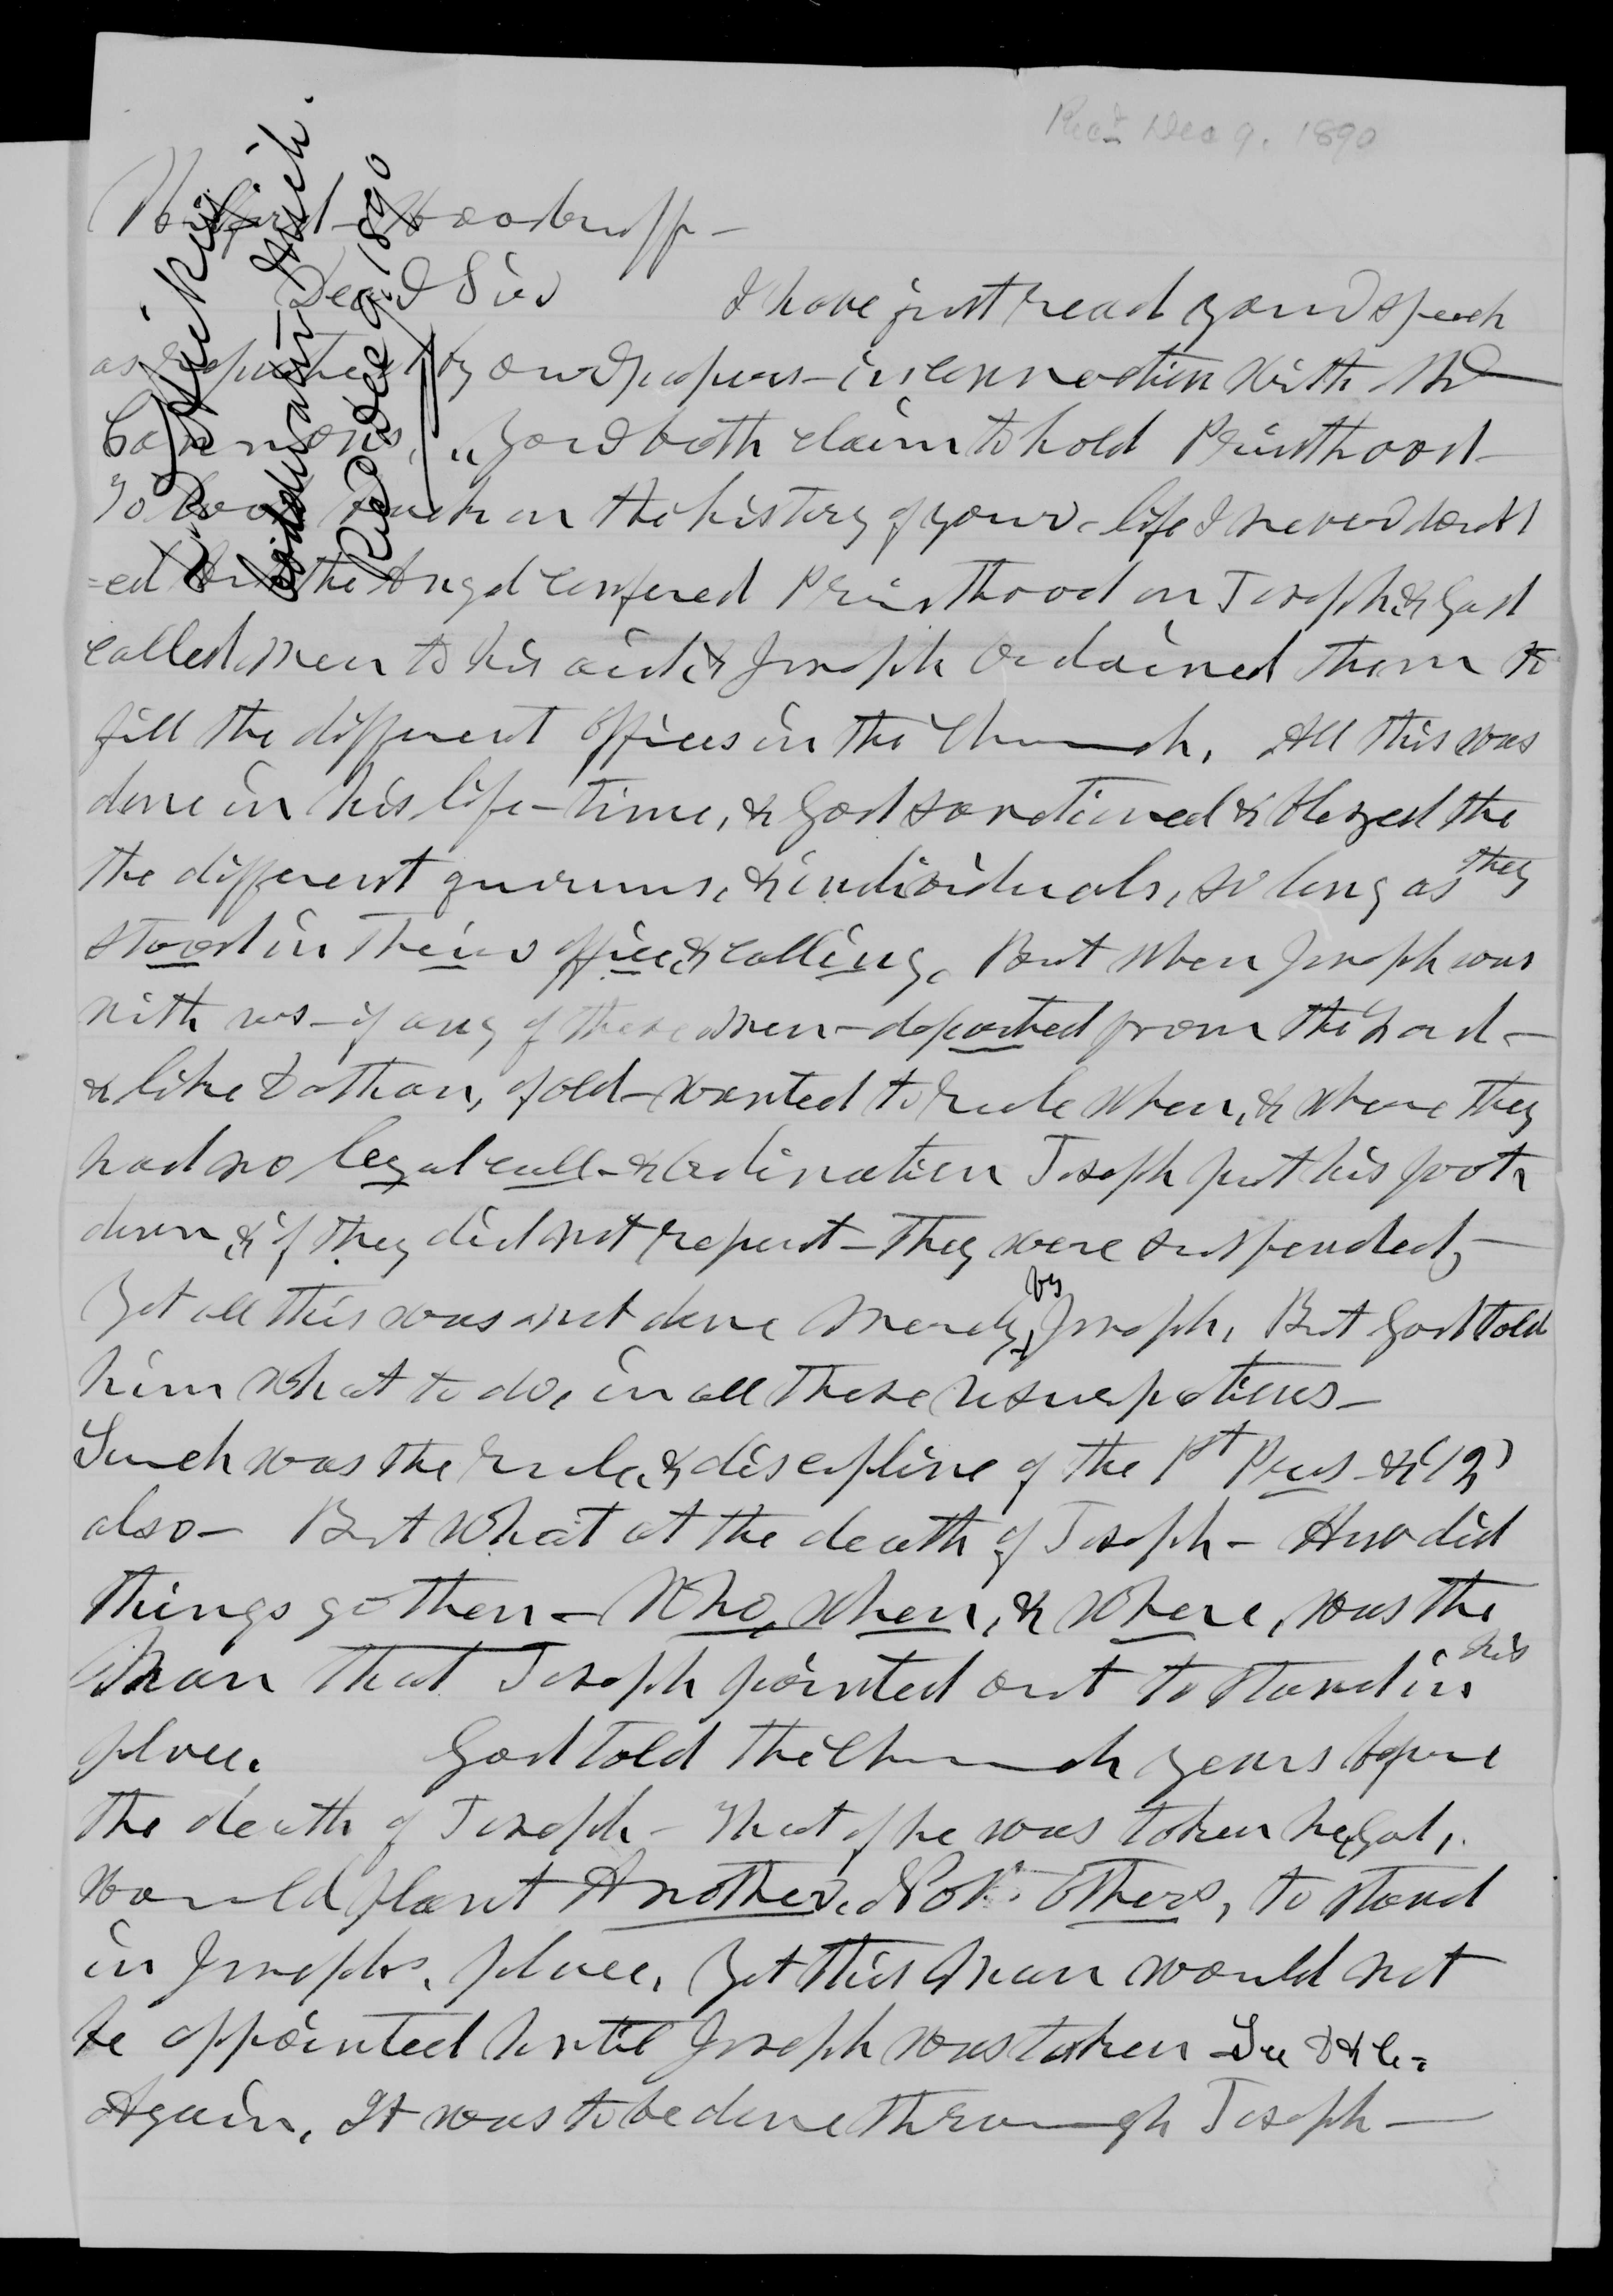 Recd Dec 9. 1890
Wilford Woodruff -
Dear Sir I have just read your speech
as reported by our papers - in connection with Mr
Cannons, "your both claim to hold Priesthood -
To look back on the history of your life I never doubt
=ed but the Angel confered Priesthood on Joseph & God
called men to his aid & Joseph Ordained them to
fill the different offices in the Church. All this was
done in his life-time, & God sanctioned & blezed the
the different quorums, & individuals, so long as they
stood in their office & calling. But when Joseph was
with us - if any of these men - departed from the Lord -
& like Dathan, of old - wanted to rule when, & where they
had no legal call - & Ordination Joseph put his foot
down & if they did not repent - They were suspended, -
Yet all this was not done merely by Joseph, But God told
him what to do, in all these usurpations -
Such was the rule & discipline of the 1st Pres - & (12)
also - But what at the death of Joseph - How did
things go then - Who, when, & where, was the
Man that Joseph pointed out to stand in his
place. God told the Church years before
the death of Joseph - that if he was taken he God,
would plant Another, Not others, to stand
in Josephs, place, Yet this man would not
be appointed until Joseph was taken - See D & C -
Again, It was to be done through Joseph -
Voree, Mich.
Recd Dec 9 1890